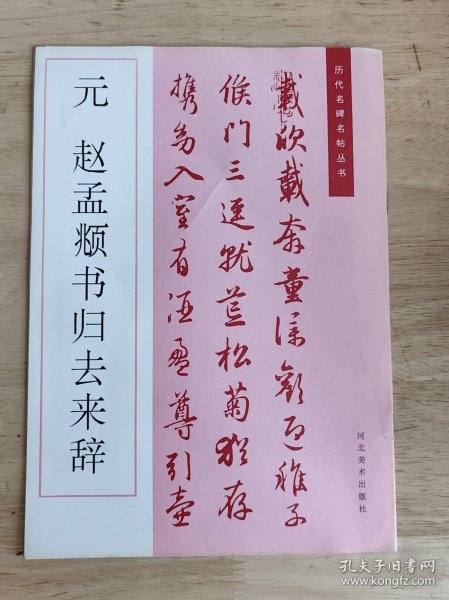 历代名碑名帖丛书
元 赵孟𫖯书归去来辞
載欣載奔童僕歡迎稚子
候门三逕就荒松菊猶存
携幼入室有酒盈尊引壺
河北美术出版社
孔夫子旧书网
www.kongfz.com